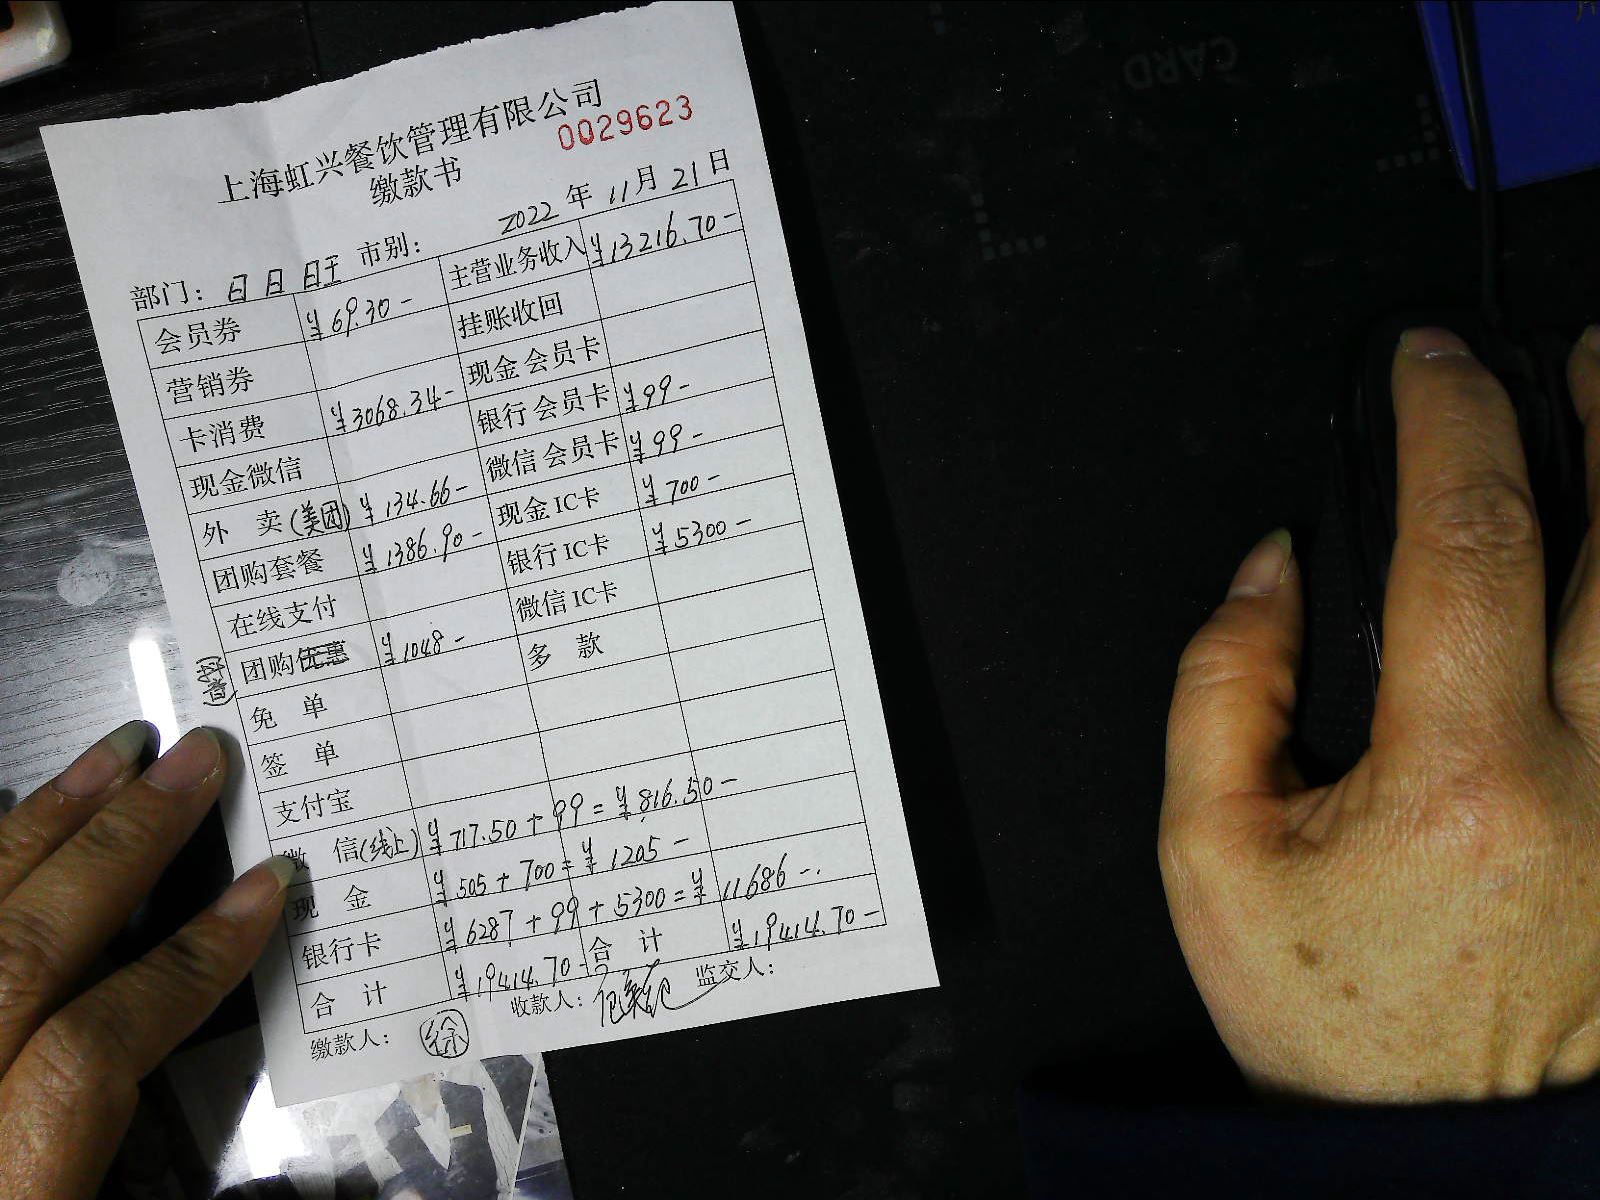 上海虹兴餐饮管理有限公司
0029623
缴款书
2022 年 11 月 21 日
部门： 日日旺 市别：
会员券 ¥69.30- 主营业务收入 ¥13216.70-
营销券 挂账收回
卡消费 ¥3068.34- 现金 会员卡
现金微信 银行 会员卡 ¥99-
外 卖(美团) ¥134.66- 微信 会员卡 ¥99-
团购套餐 ¥1386.90- 现金 IC卡 ¥700-
在线支付 银行 IC卡 ¥5300-
(抖音) 团购优惠 ¥1048- 微信 IC卡
免 单 多 款
签 单
支付宝
微 信(线上) ¥717.50+99=¥816.50-
现 金 ¥505+700=¥1205-
银行卡 ¥6287+99+5300=¥11686-
合 计 ¥19414.70- 合 计 ¥19414.70-
缴款人： 徐 收款人： 监交人：
CARD